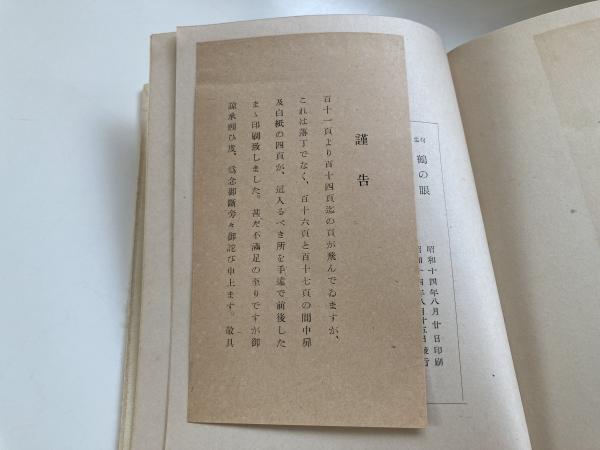 謹告
百十一頁より百十四頁迄の頁が飛んでゐますが、
これは落丁でなく、百十六頁と百十七頁の間中扉
及白紙の四頁が、這入るべき所を手違で前後した
まゝ印刷致しました。甚だ不滿足の至りですが御
諒承願ひ度、為念御斷旁々御詫び申上ます。敬具
句集 鶴の眼
昭和十四年八月廿日印刷
昭和十四年八月廿五日發行